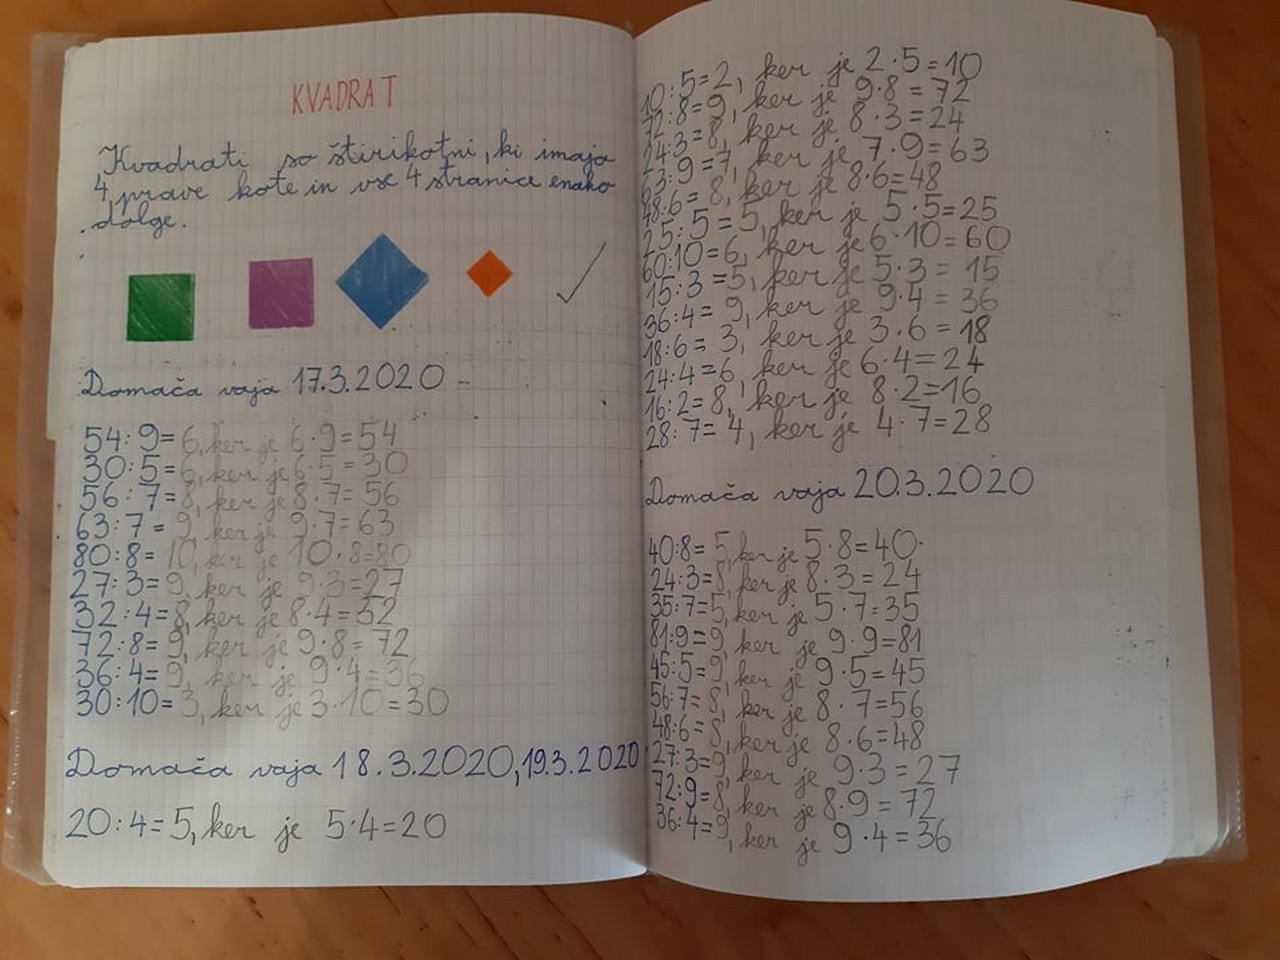 KVADRAT
Kvadrati so štirikotni, ki imajo
4 prave kote in vse 4 stranice enako
dolge.
Domača vaja 17.3.2020
54:9=6, ker je 6·9=54
30:5=6, ker je 6·5=30
56:7=8, ker je 8·7=56
63:7=9, ker je 9·7=63
80:8=10, ker je 10·8=80
27:3=9, ker je 9·3=27
32:4=8, ker je 8·4=32
72:8=9, ker je 9·8=72
36:4=9, ker je 9·4=36
30:10=3, ker je 3·10=30
Domača vaja 18.3.2020, 19.3.2020
20:4=5, ker je 5·4=20
10:5=2, ker je 2·5=10
72:8=9, ker je 9·8=72
24:3=8, ker je 8·3=24
63:9=7, ker je 7·9=63
48:6=8, ker je 8·6=48
25:5=5, ker je 5·5=25
60:10=6, ker je 6·10=60
15:3=5, ker je 5·3=15
36:4=9, ker je 9·4=36
18:6=3, ker je 3·6=18
24:4=6, ker je 6·4=24
16:2=8, ker je 8·2=16
28:7=4, ker je 4·7=28
Domača vaja 20.3.2020
40:8=5, ker je 5·8=40
24:3=8, ker je 8·3=24
35:7=5, ker je 5·7=35
81:9=9, ker je 9·9=81
45:5=9, ker je 9·5=45
56:7=8, ker je 8·7=56
48:6=8, ker je 8·6=48
27:3=9, ker je 9·3=27
72:9=8, ker je 8·9=72
36:4=9, ker je 9·4=36